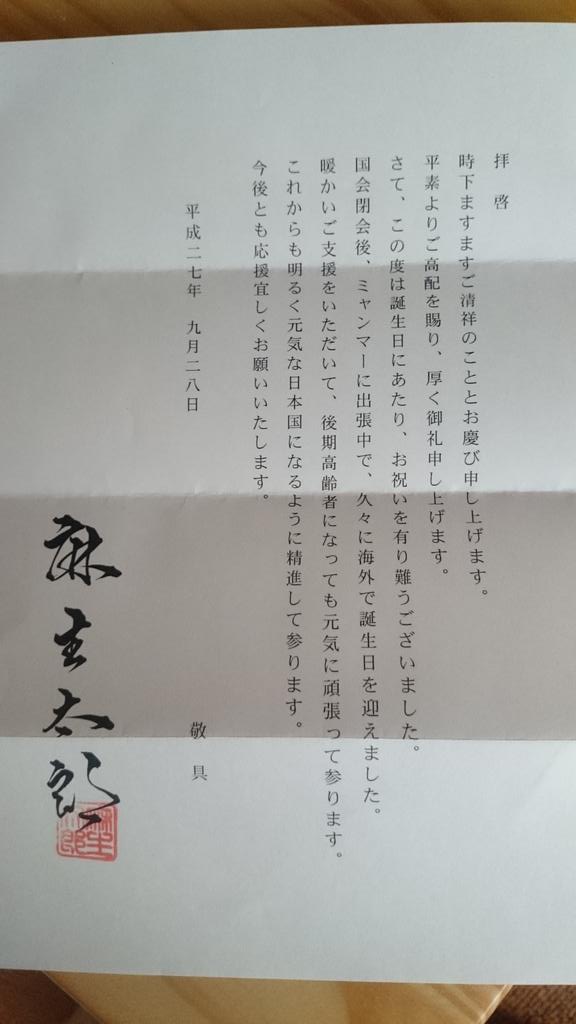 拝啓
時下ますますご清祥のこととお慶び申し上げます。
平素よりご高配を賜り、厚く御礼申し上げます。
さて、この度は誕生日にあたり、お祝いを有り難うございました。
国会閉会後、ミャンマーに出張中で、久々に海外で誕生日を迎えました。
暖かいご支援をいただいて、後期高齢者になっても元気に頑張って参ります。
これからも明るく元気な日本国になるように精進して参ります。
今後とも応援宜しくお願いいたします。
敬具
平成二七年 九月二八日
麻生太郎